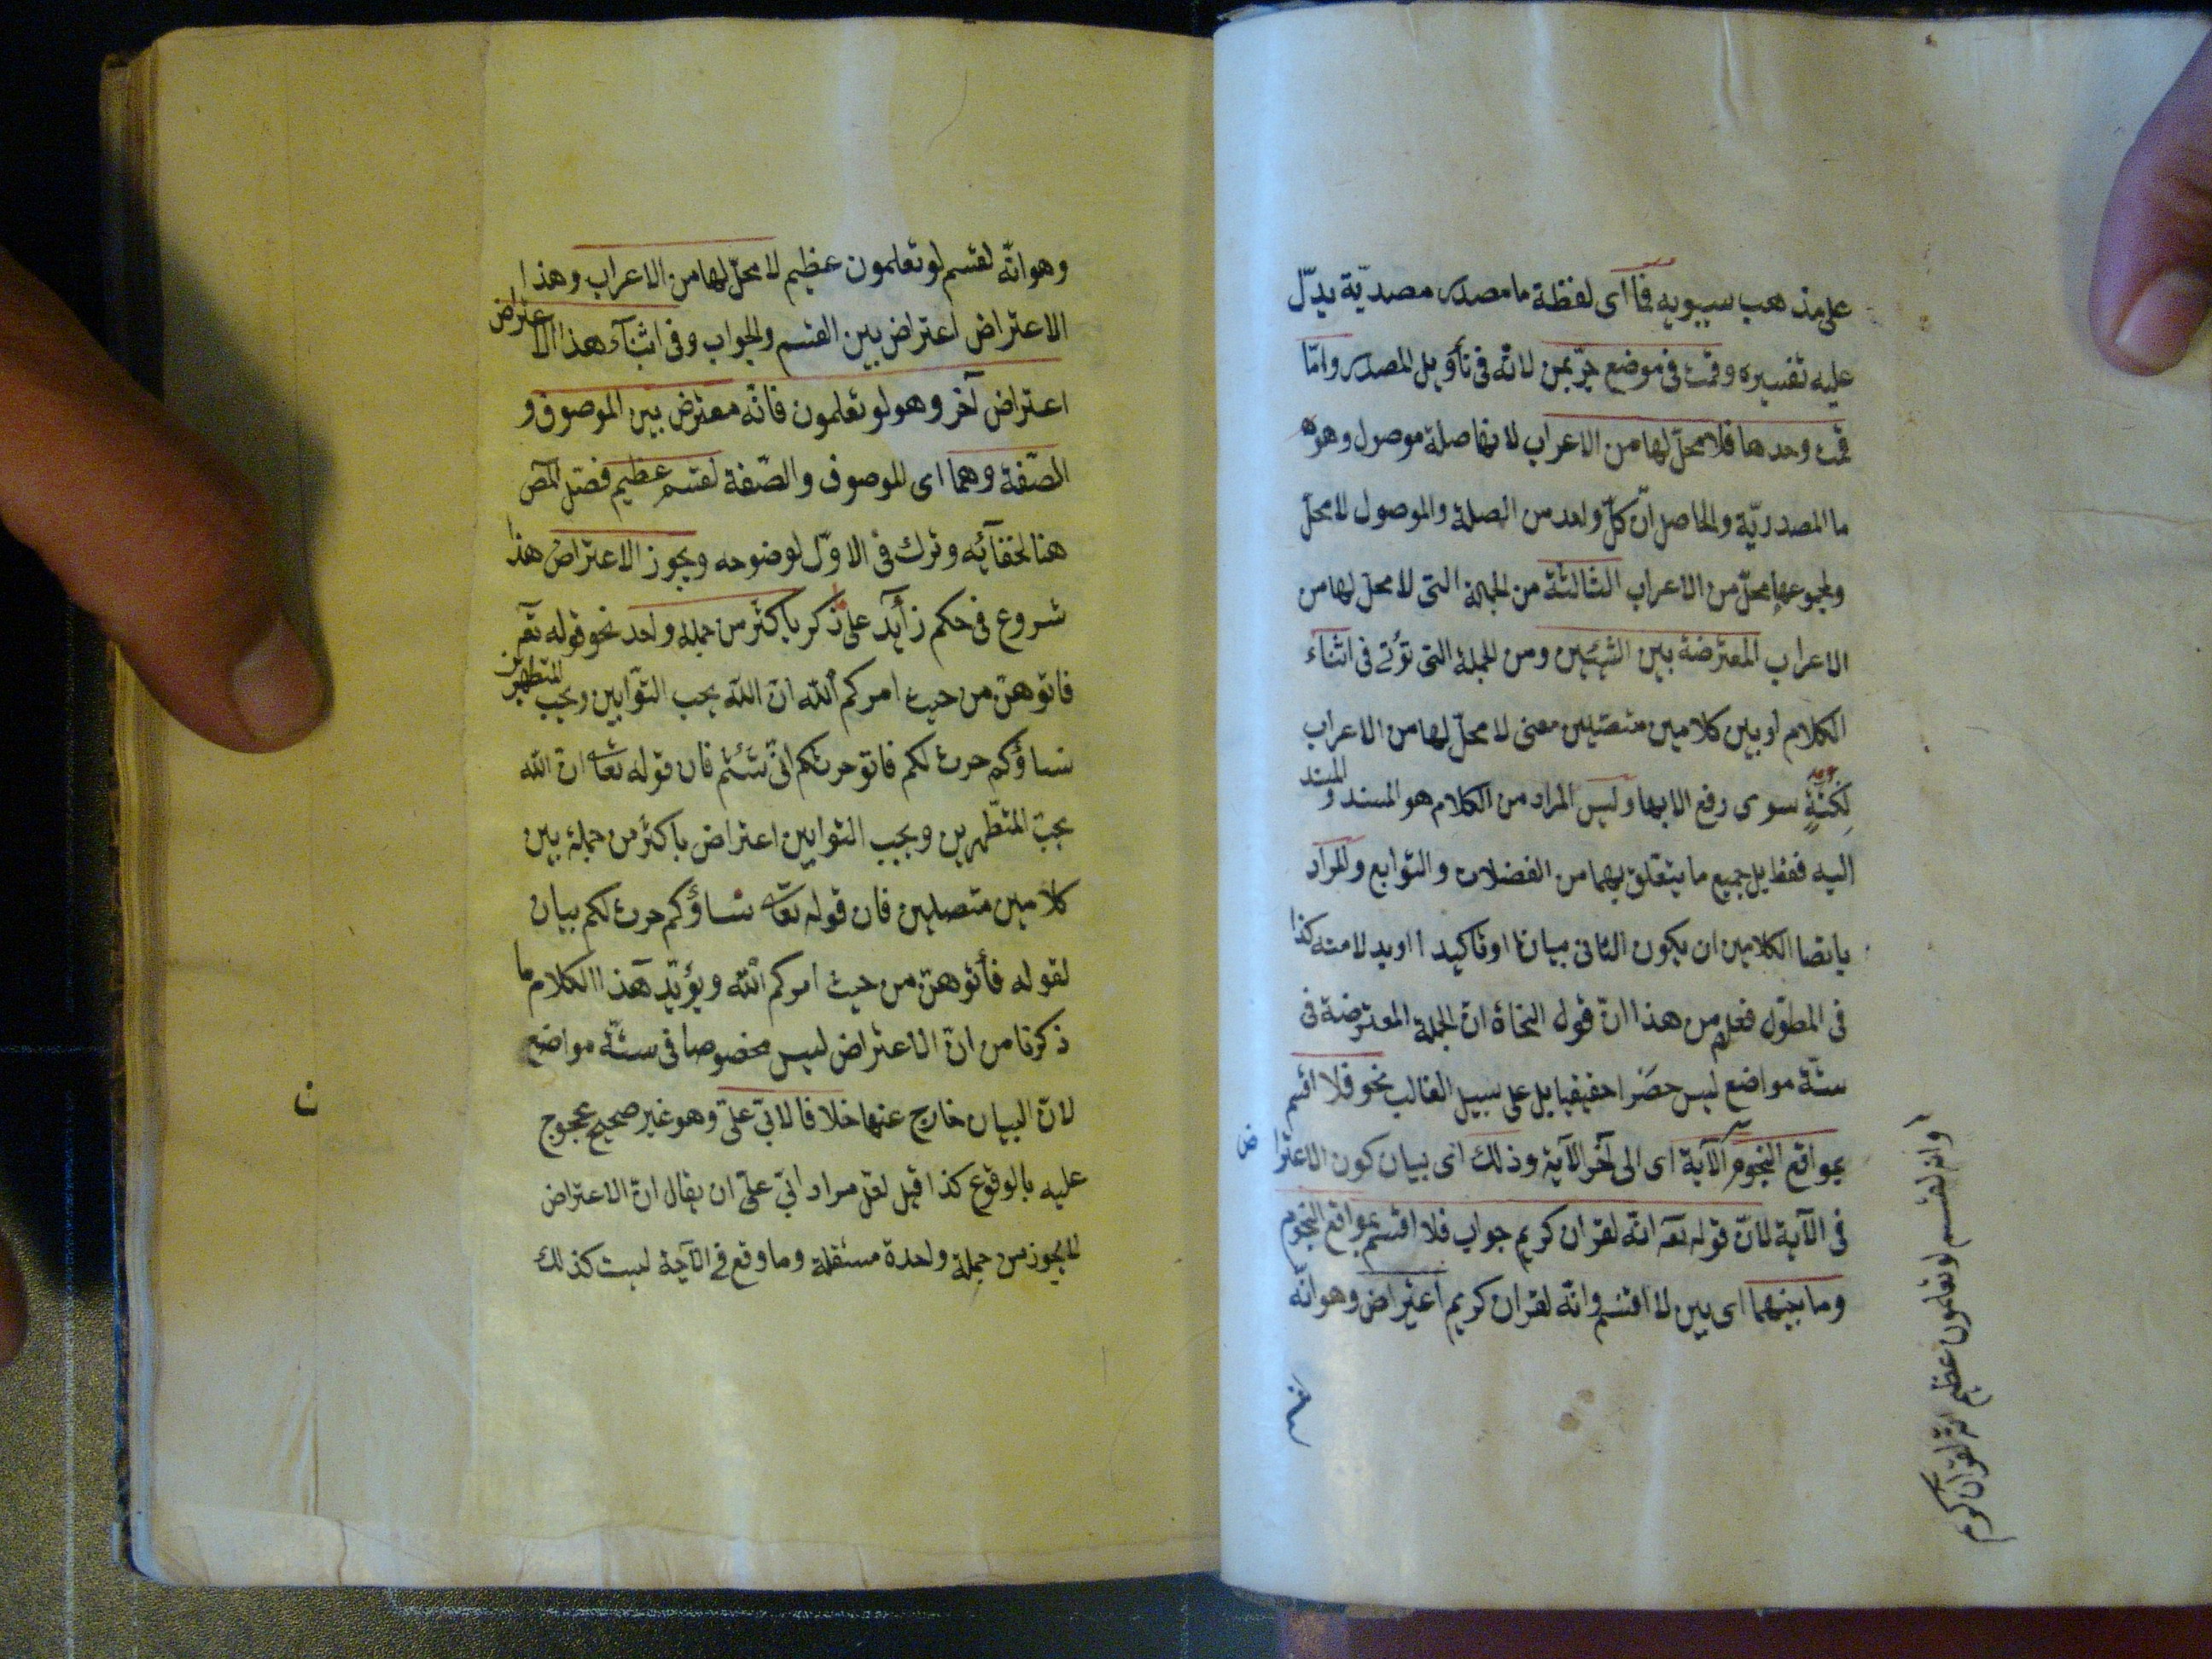 على مذهب سيبويه فما اى لفظة ما مصدر مصديّة يدلّ
عليه تفسيره وقمت فى موضع جرّ بمن لانّه فى تأويل المصدر وامّا
قمت وحدها فلا محلّ لها من الاعراب لانها صلة موصول وهو
ما المصدريّة والحاصل انّ كلّ واحد من الصلة والموصول لا محلّ
ولمجموعهما محلّ من الاعراب الثالثة من الجملة التى لا محل لها من
الاعراب المعترضة بين الشيئين ومن الجملة التى تؤتى فى اثناء
الكلام او بين كلامين متصلين معنى لا محلّ لها من الاعراب
لنكتةٍ سوى رفع الابهام وليس المراد من الكلام هو المسند والمسند
اليه فقط بل جميع ما يتعلّق بهما من الفضلات والتوابع والمراد
باتصا الكلامين ان يكون الثانى بيانا او تاكيدا او بدلا منه كذا
فى المطوّل فعلم من هذا انّ قول النحاة انّ الجملة المعترضة فى
ستّة مواضع ليس حصرا حقيقيا بل على سبيل الغالب نحو فلا اقسم
بمواقع النجوم الآية اى الى آخر الآية وذلك اى بيان كون الاعتراض
فى الآية لانّ قوله تعه انّه لقران كريم جواب فلا اقسم بمواقع النجوم
وما بينهما اى بين لا اقسم وانّه لقران كريم اعتراض وهو انّه
وانه لقسم لو تعلمون عظيم انه لقرآن كريم
وهو انّه لقسم لو تعلمون عظيم لا محلّ لها من الاعراب وهذا
الاعتراض اعتراض بين القسم والجواب وفى اثناء هذا الاعتراض
اعتراض آخر وهو لو تعلمون فانّه معترض بين الموصوف و
الصّفة وهما اى الموصوف والصّفة لقسم عظيم فصّل المص
هنا لخفائه وترك فى الاوّل لوضوحه ويجوز الاعتراض هذا
شروع فى حكم زائد على ذكر باكثر من جملة واحد نحو قوله تعه
فاتوهنّ من حيث امركم الله انّ الله يحب التوّابين ويحب المتطهرين
نساؤكم حرث لكم فاتو حرثكم انّى شئتم فان قوله تعا انّ الله
يحبّ المتطهرين ويحب التوابين اعتراض باكثر من جملة بين
كلامين متصلين فان قوله تعا نساؤكم حرث لكم بيان
لقوله فأتوهنّ من حيث امركم الله ويؤيّد هذا الكلام ما
ذكرنا من انّ الاعتراض ليس مخصوصا فى ستّة مواضع
لانّ البيان خارج عنها خلافا لابى علىّ وهو غير صحيح محجوج
عليه بالوقوع كذا قيل لعلّ مراد ابى علىّ ان يقال انّ الاعتراض
لا يجوز من جملة واحدة مستقلة وما وقع فى الآية ليست كذلك